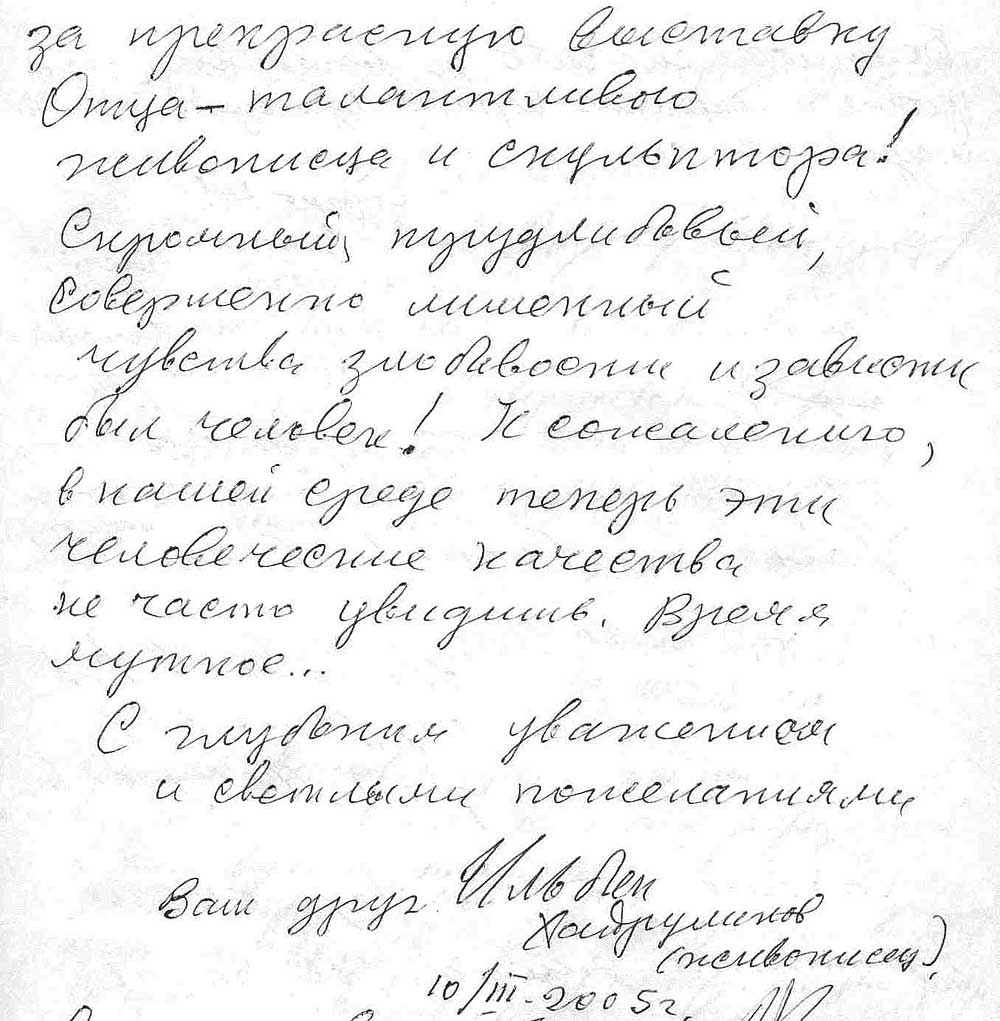 за прекрасную выставку
Отца – талантливого
живописца и скульптора!
Скромный,
совершенно лишенный
чувства злобивости и зависти
был человек! К сожалению,
в нашей среде теперь эти
человеческие качества
не часто увидишь. Время
мутное...
С глубоким уважением
и светлыми пожеланиями
Ваш друг Ильбек
Хайрулинов
(живописец)
10/III-2005г.